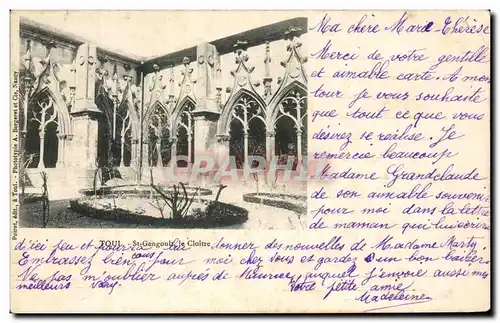 Ma chère Marie-Thérèse
Merci de votre gentille
et aimable carte. A mon
tour je vous souhaite
que tout ce que vous
désirez se réalise. Je
remercie beaucoup
Madame Grandclaude
de son aimable souvenir
pour moi dans la lettre
de maman qui lui écrira
d'ici peu et pourra lui donner des nouvelles de Madame Marty.
Embrassez bien tous pour moi chez vous et gardez un bon baiser.
Ne pas m'oublier auprès de Maurice, auquel j'envoie aussi mes
meilleurs
Votre petite amie
Madeleine
TOUL - St-Gengoult, le Cloître
Poirot, édit., à Toul. - Phototypie A. Bergeret et Cie, Nancy
CPARAMA